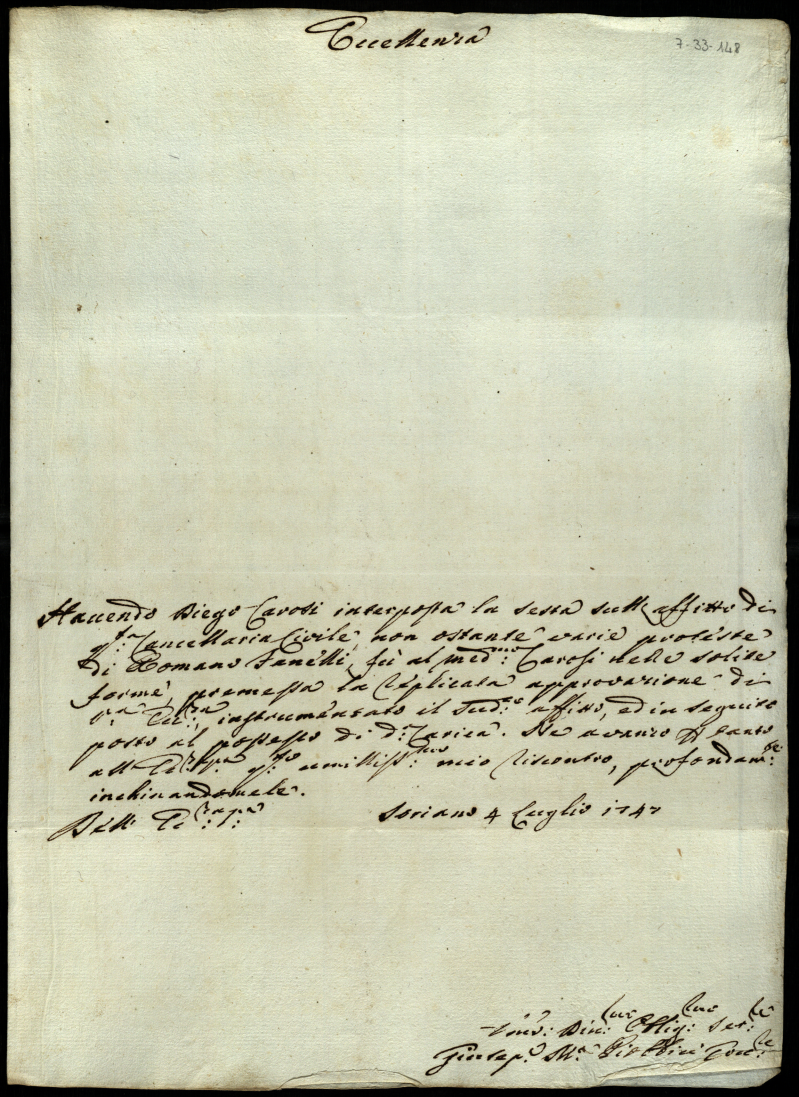 Eccellenza
7-33-148
Havendo Diego Carosi interposta la sesta sull'affitto di
q.ta Cancellaria Civile, non ostante varie proteste
di Romano Fanelli, fù al med.mo Carosi nelle solite
forme, premessa la replicata approvazione di
V.ra Ecc.za, instrumentato il sud.o affitto, ed in seguito
posto al possesso di d.a Carica. Ne avanzo p tanto
all' Ec.za q.to umiliss.mo mio riscontro, profondam.te
inchinandomele.
Dell' Ec.za
Soriano 4 Luglio 1747
Div.mo Oblig.mo Ser.re
Giusep.e M.a